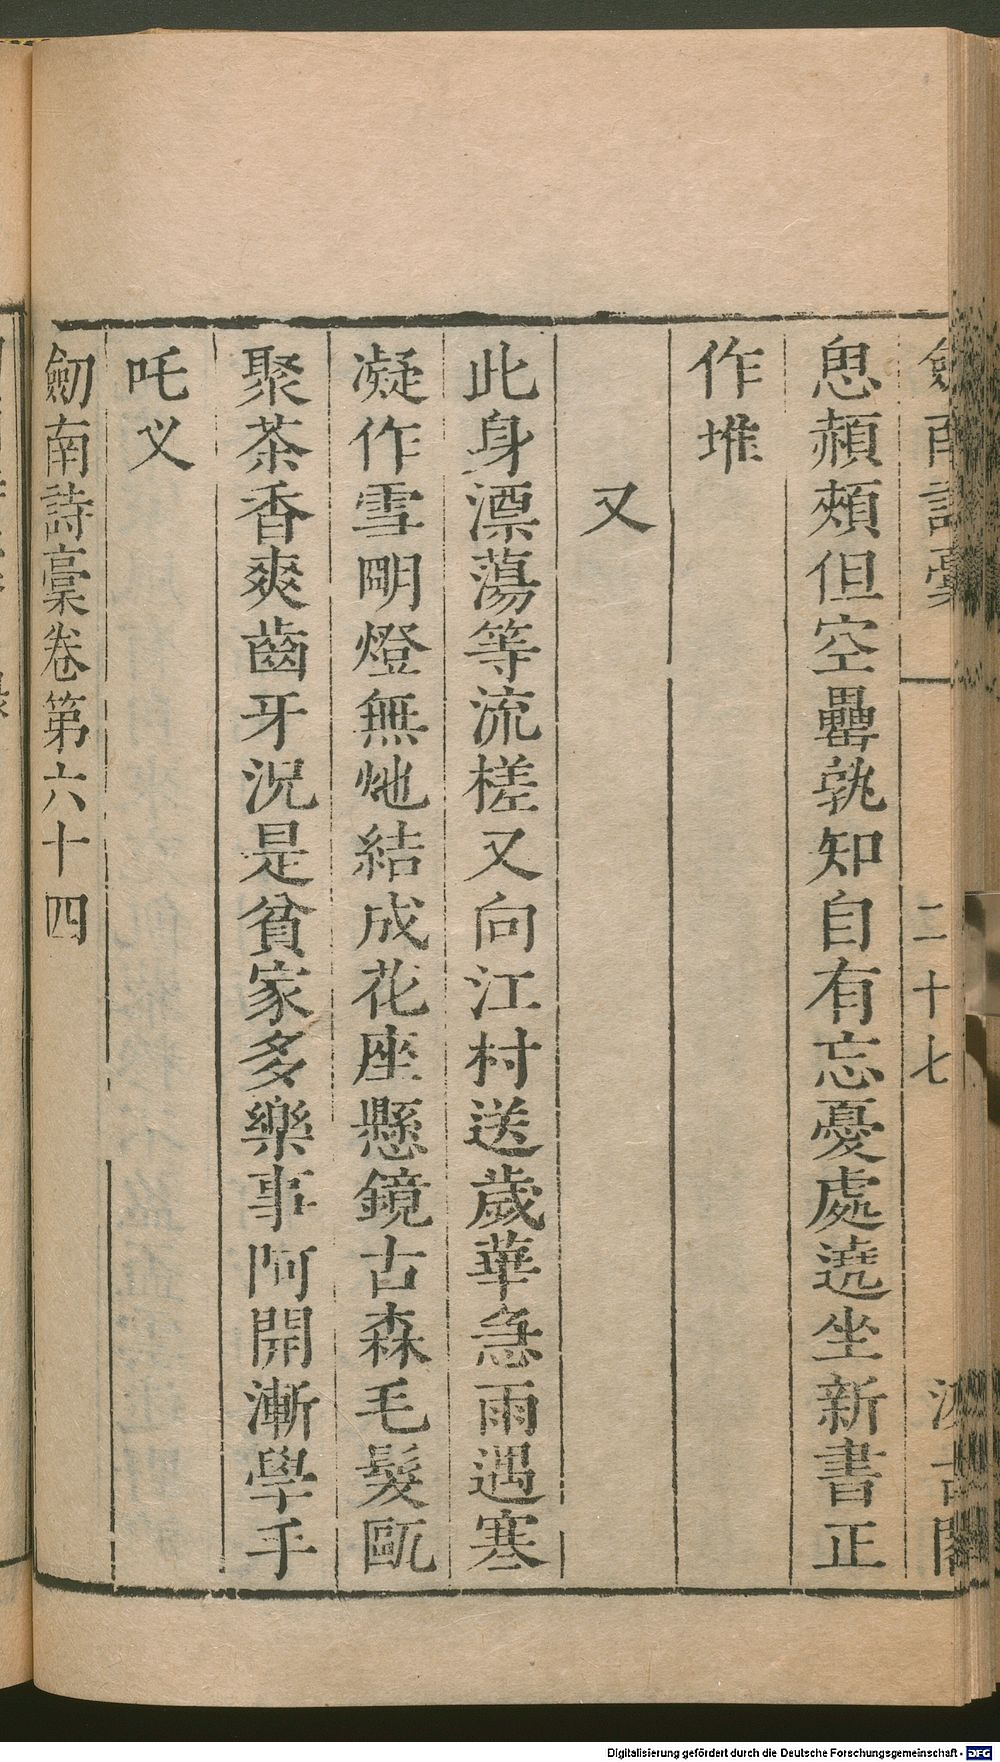 劒南詩稾 二十七 汲古閣
思赬頰但空罍孰知自有忘憂處遶坐新書正
作堆
又
此身漂蕩等流槎又向江村送歲華急雨遇寒
凝作雪明燈無灺結成花座懸鏡古森毛髮甌
聚茶香爽齒牙況是貧家多樂事阿開漸學手
吒义
劒南詩稾卷第六十四
Digitalisierung gefördert durch die Deutsche Forschungsgemeinschaft - DFG